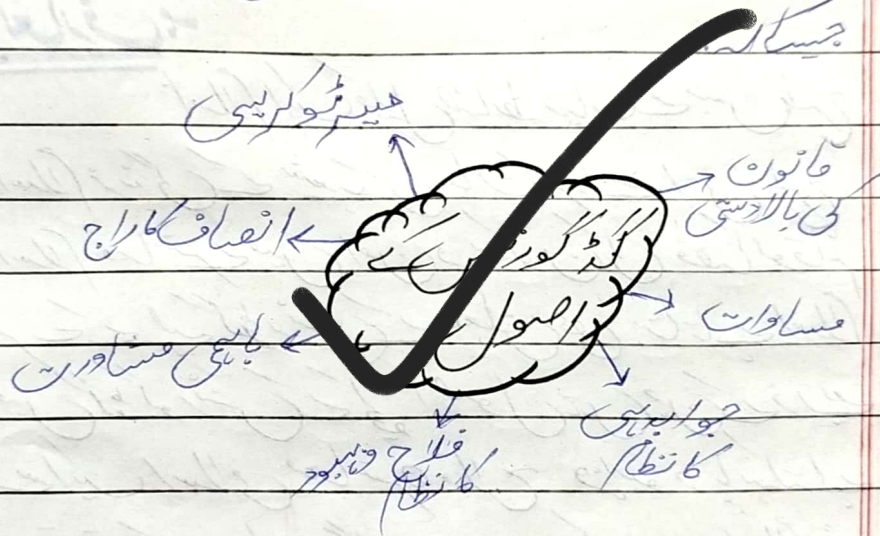 جیسا کہ:
میرٹوکریسی
قانون
کی بالادستی
انصاف کا راج
گڈ گورننس کے
اصول
مساوات
باہمی مشاورت
جوابدہی
کا نظام
فلاح وبہبود
کا نظام